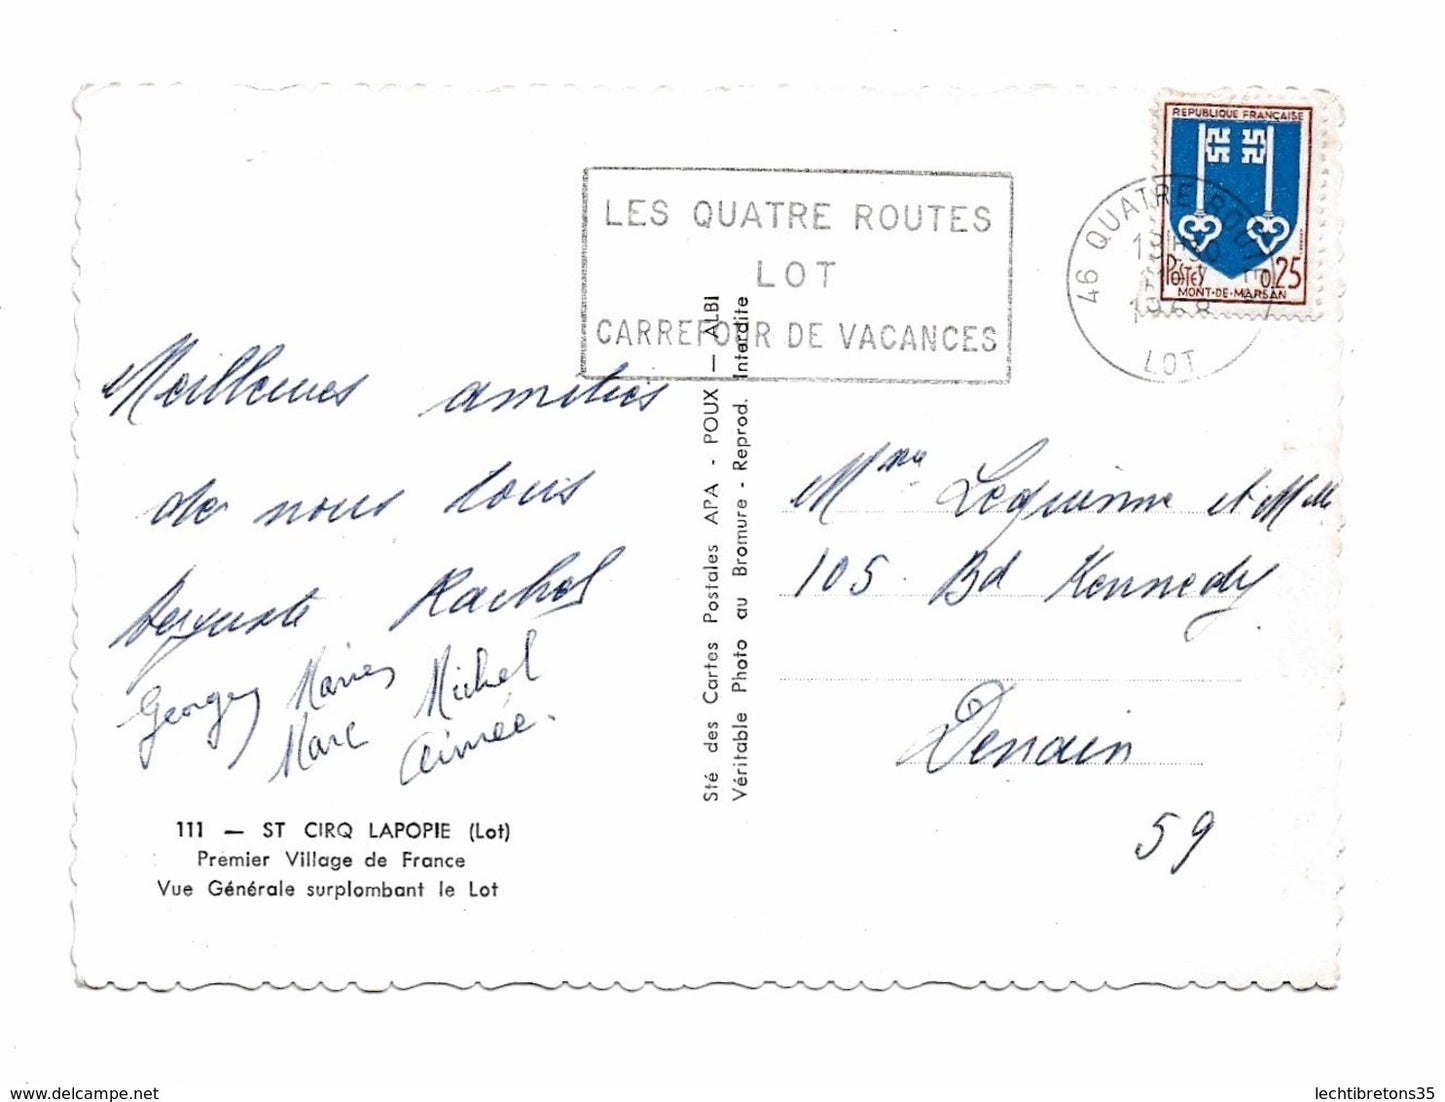 REPUBLIQUE FRANÇAISE
POSTES 0,25
MONT-DE-MARSAN
46 QUATRE ROUTES
LOT
LES QUATRE ROUTES
LOT
CARREFOUR DE VACANCES
Meilleures amitiés
de nous tous
Rachel
Georges Marie Michel
Marc Aimée.
111 — ST CIRQ LAPOPIE (Lot)
Premier Village de France
Vue Générale surplombant le Lot
Sté des Cartes Postales APA - POUX — ALBI
Véritable Photo au Bromure - Reprod. Interdite
Mme Lequinne et Melle
105. Bd Kennedy
Denain
59
delcampe.net
lechtibretons35